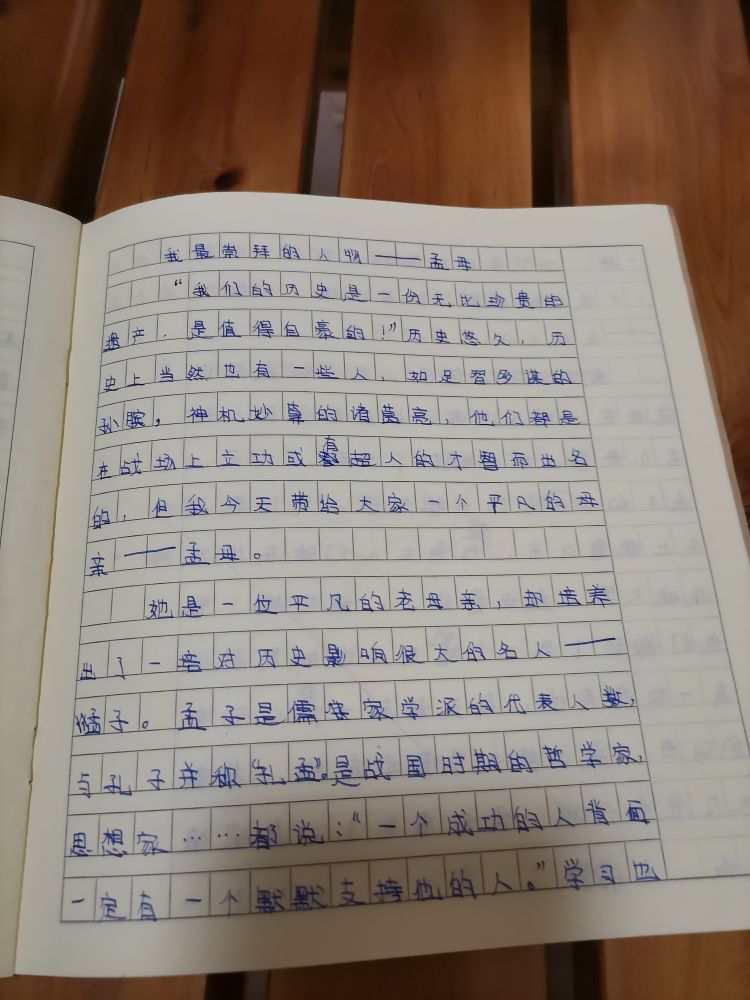 我最崇拜的人物——孟母
“我们的历史是一份无比珍贵的
遗产，是值得自豪的！”历史悠久，历
史上当然也有一些人，如足智多谋的
孙膑，神机妙算的诸葛亮，他们都是
在战场上立功或有超人的才智而出名
的，但我今天带给大家一个平凡的母
亲——孟母。
她是一位平凡的老母亲，却培养
出了一培对历史影响很大的名人——
孟子。孟子是儒家学派的代表人数，
与孔子并称“孔孟”。是战国时期的哲学家，
思想家……都说：“一个成功的人背面
一定有一个默默支持他的人。”学习也